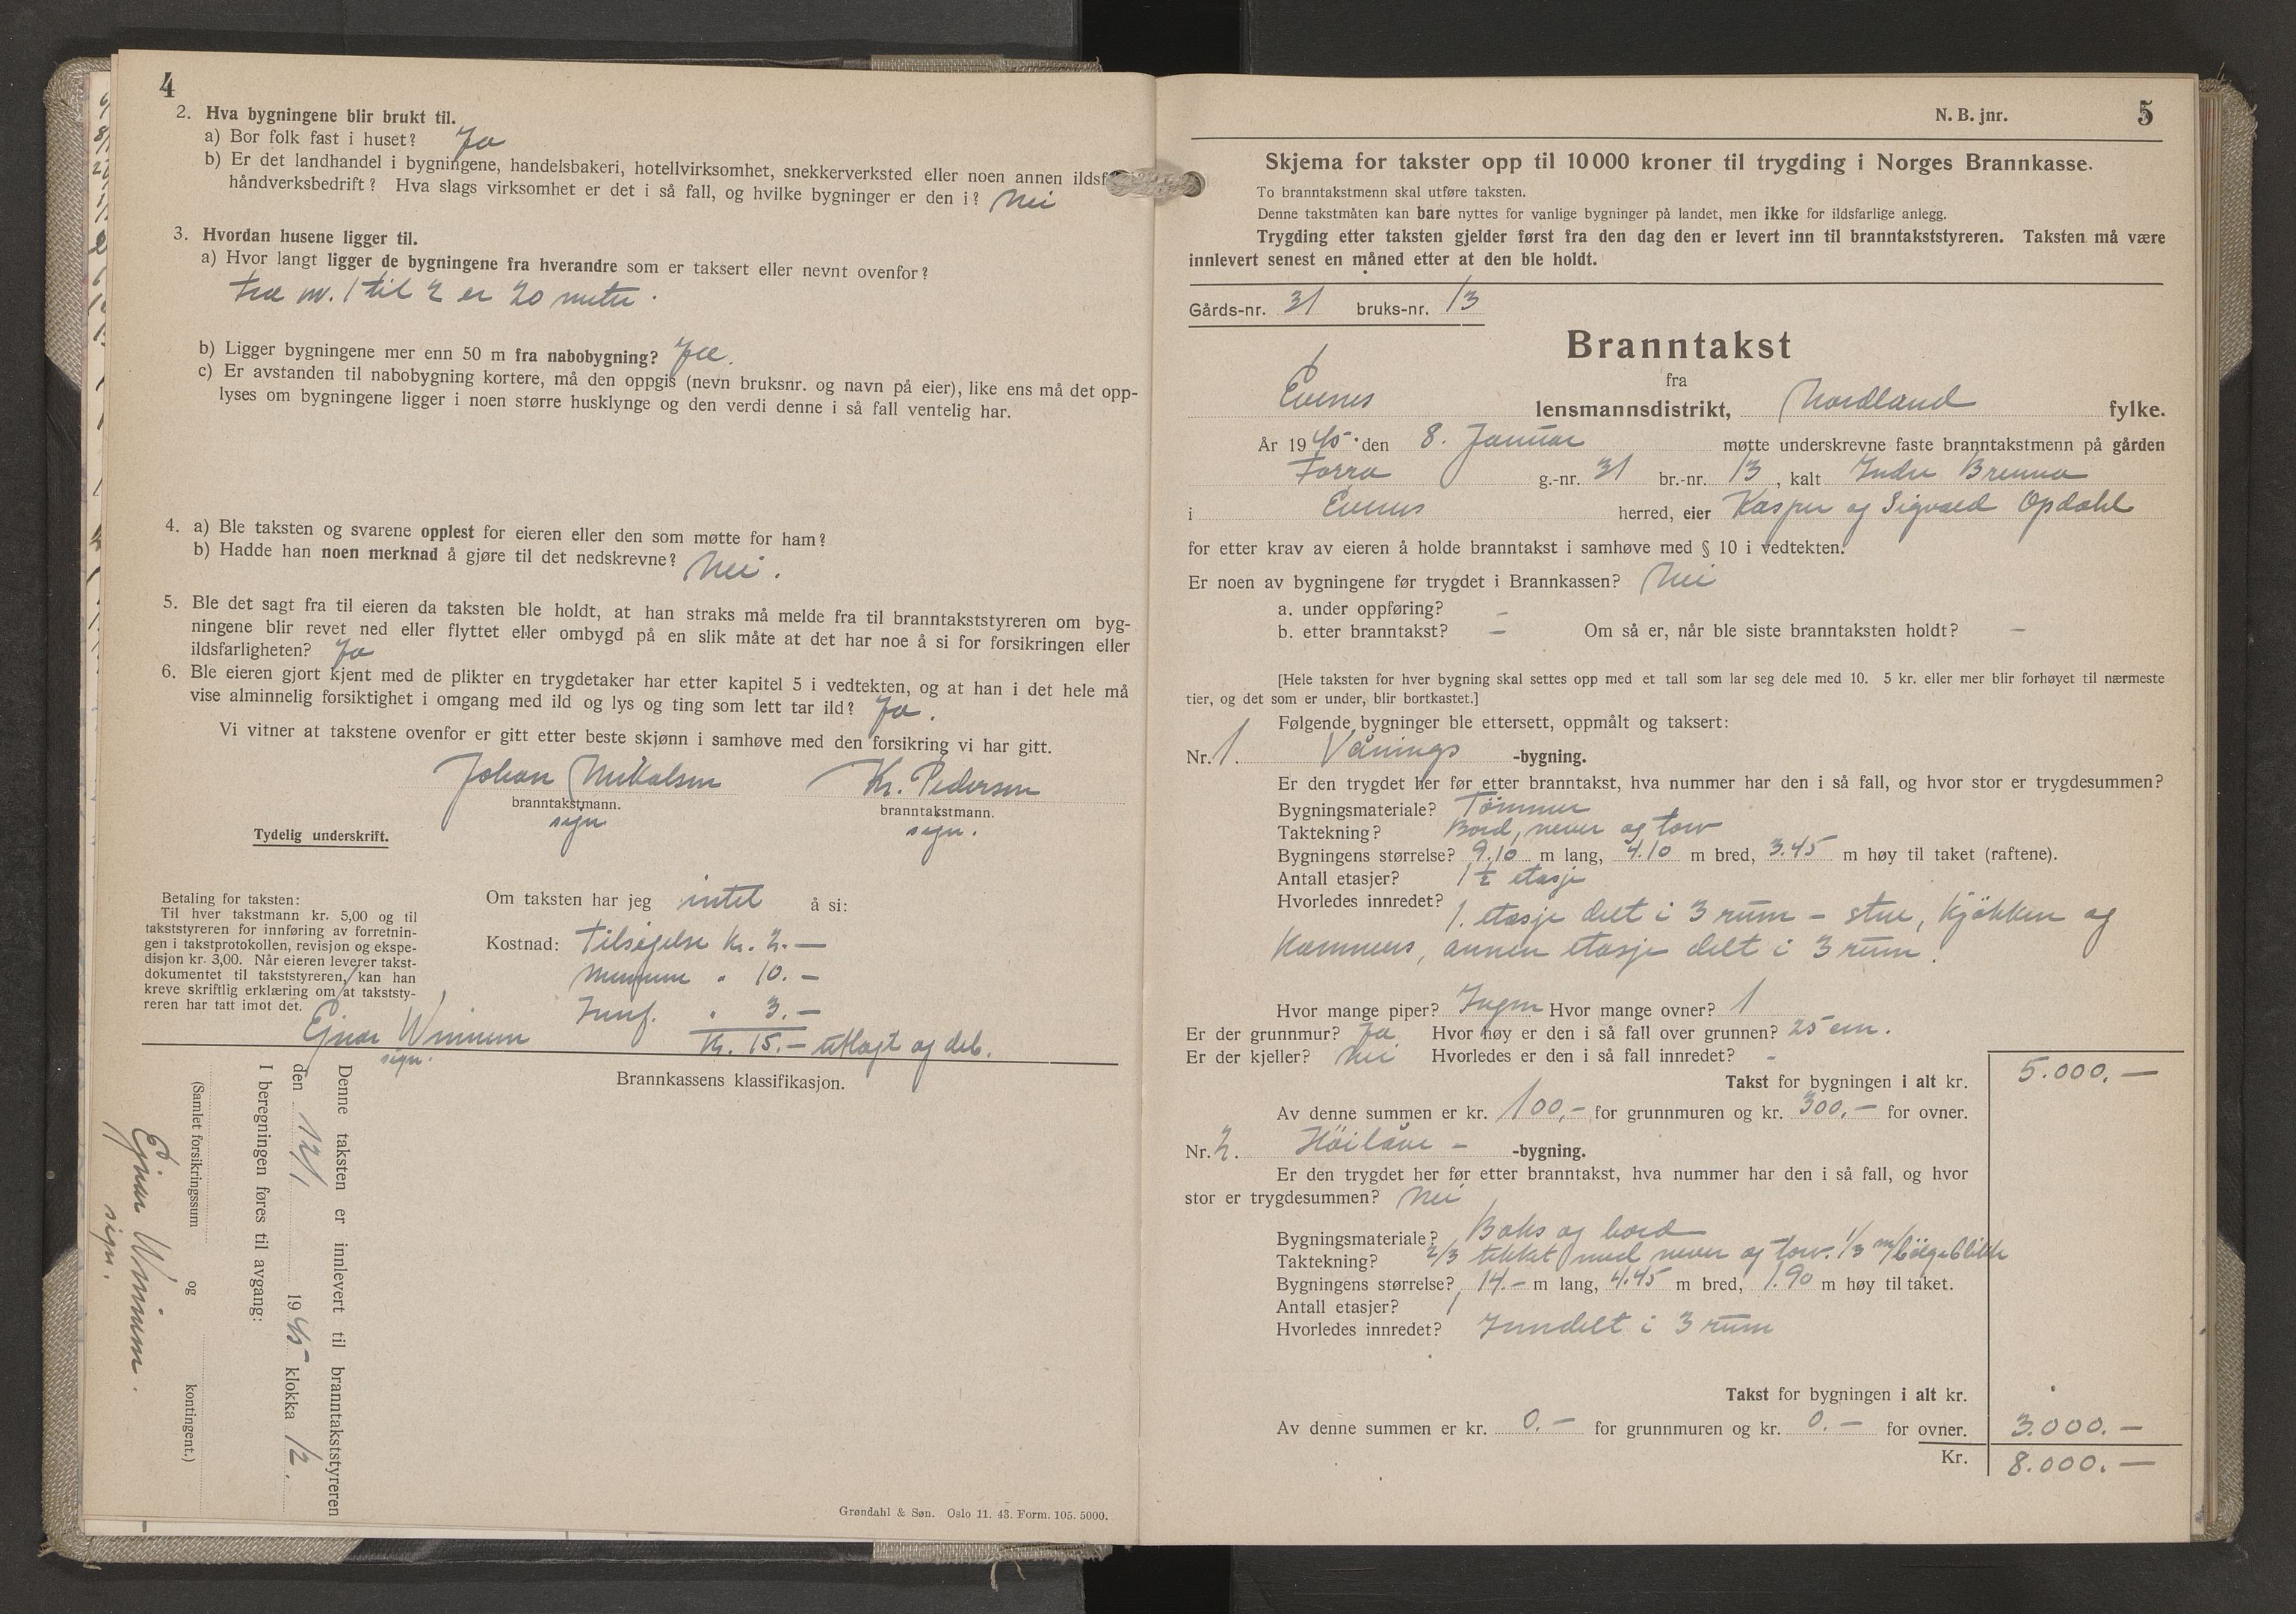 4
2. Hva bygningene blir brukt til.
a) Bor folk fast i huset? Ja
b) Er det landhandel i bygningene, handelsbakeri, hotellvirksomhet, snekkerverksted eller noen annen ildsf
håndverksbedrift? Hva slags virksomhet er det i så fall, og hvilke bygninger er den i? Nei
3. Hvordan husene ligger til.
a) Hvor langt ligger de bygningene fra hverandre som er taksert eller nevnt ovenfor?
Fra nr. 1 til 2 er 20 meter.
b) Ligger bygningene mer enn 50 m fra nabobygning? Ja.
c) Er avstanden til nabobygning kortere, må den oppgis (nevn bruksnr. og navn på eier), like ens må det opp-
lyses om bygningene ligger i noen større husklynge og den verdi denne i så fall ventelig har.
4. a) Ble taksten og svarene opplest for eieren eller den som møtte for ham?
b) Hadde han noen merknad å gjøre til det nedskrevne? Nei.
5. Ble det sagt fra til eieren da taksten ble holdt, at han straks må melde fra til branntakststyreren om byg-
ningene blir revet ned eller flyttet eller ombygd på en slik måte at det har noe å si for forsikringen eller
ildsfarligheten? Ja
6. Ble eieren gjort kjent med de plikter en trygdetaker har etter kapitel 5 i vedtekten, og at han i det hele må
vise alminnelig forsiktighet i omgang med ild og lys og ting som lett tar ild? Ja.
Vi vitner at takstene ovenfor er gitt etter beste skjønn i samhøve med den forsikring vi har gitt.
Johan Mikalsen Kr. Pedersen
branntakstmann. branntakstmann.
sign sign.
Tydelig underskrift.
Betaling for taksten:
Til hver takstmann kr. 5,00 og til
takststyreren for innføring av forretnin-
gen i takstprotokollen, revisjon og ekspe-
disjon kr. 3,00. Når eieren leverer takst-
dokumentet til takststyreren, kan han
kreve skriftlig erklæring om at takststy-
reren har tatt imot det.
Om taksten har jeg intet å si:
Kostnad: Tilsigelse kr. 2.—
Mennene " 10.—
Innf. " 3.—
Kr. 15.— utlagt og deb.
Ejnar Wininen
sign.
Brannkassens klassifikasjon.
Denne taksten er innlevert til branntakststyreren
den 12/1 1945 klokka 12.
I beregningen føres til avgang:
(Samlet forsikringssum og kontingent.)
Ejnar Wininen.
sign.
Grøndahl & Søn. Oslo 11. 43. Form. 105. 5000.
N. B. jnr. 5
Skjema for takster opp til 10 000 kroner til trygding i Norges Brannkasse.
To branntakstmenn skal utføre taksten.
Denne takstmåten kan bare nyttes for vanlige bygninger på landet, men ikke for ildsfarlige anlegg.
Trygding etter taksten gjelder først fra den dag den er levert inn til branntakststyreren. Taksten må være
innlevert senest en måned etter at den ble holdt.
Gårds-nr. 31 bruks-nr. 13
Branntakst
fra
Evenes lensmannsdistrikt, Nordland fylke.
År 1945. den 8. Januar møtte underskrevne faste branntakstmenn på gården
Forra g.-nr. 31 br.-nr. 13, kalt Indre Brenna
i Evenes herred, eier Kasper og Sigvald Opdahl
for etter krav av eieren å holde branntakst i samhøve med § 10 i vedtekten.
Er noen av bygningene før trygdet i Brannkassen? Nei
a. under oppføring? –
b. etter branntakst? – Om så er, når ble siste branntaksten holdt? –
[Hele taksten for hver bygning skal settes opp med et tall som lar seg dele med 10. 5 kr. eller mer blir forhøyet til nærmeste
tier, og det som er under, blir bortkastet.]
Følgende bygninger ble ettersett, oppmålt og taksert:
Nr. 1. Vånings -bygning.
Er den trygdet her før etter branntakst, hva nummer har den i så fall, og hvor stor er trygdesummen?
Bygningsmateriale? Tømmer
Taktekning? Bord, never og torv
Bygningens størrelse? 9.10 m lang, 4.10 m bred, 3.45 m høy til taket (raftene).
Antall etasjer? 1 ½ etasje
Hvorledes innredet? 1. etasje delt i 3 rum – stue, kjøkken og
kammers, annen etasje delt i 3 rum.
Hvor mange piper? Ingen Hvor mange ovner? 1
Er der grunnmur? Ja Hvor høy er den i så fall over grunnen? 25 cm.
Er der kjeller? Nei Hvorledes er den i så fall innredet? -
Takst for bygningen i alt kr. 5.000.—
Av denne summen er kr. 100,– for grunnmuren og kr. 300,– for ovner.
Nr. 2. Höilåve – -bygning.
Er den trygdet her før etter branntakst, hva nummer har den i så fall, og hvor
stor er trygdesummen? Nei
Bygningsmateriale? Baks og bord
Taktekning? 2/3 tekket med never og torv. 1/3 m/bölgeblikk
Bygningens størrelse? 14.– m lang, 4.45 m bred, 1.90 m høy til taket.
Antall etasjer? 1
Hvorledes innredet? Inndelt i 3 rum
Takst for bygningen i alt kr.
Av denne summen er kr. 0.– for grunnmuren og kr. 0.– for ovner. 3.000.—
Kr. 8.000.—